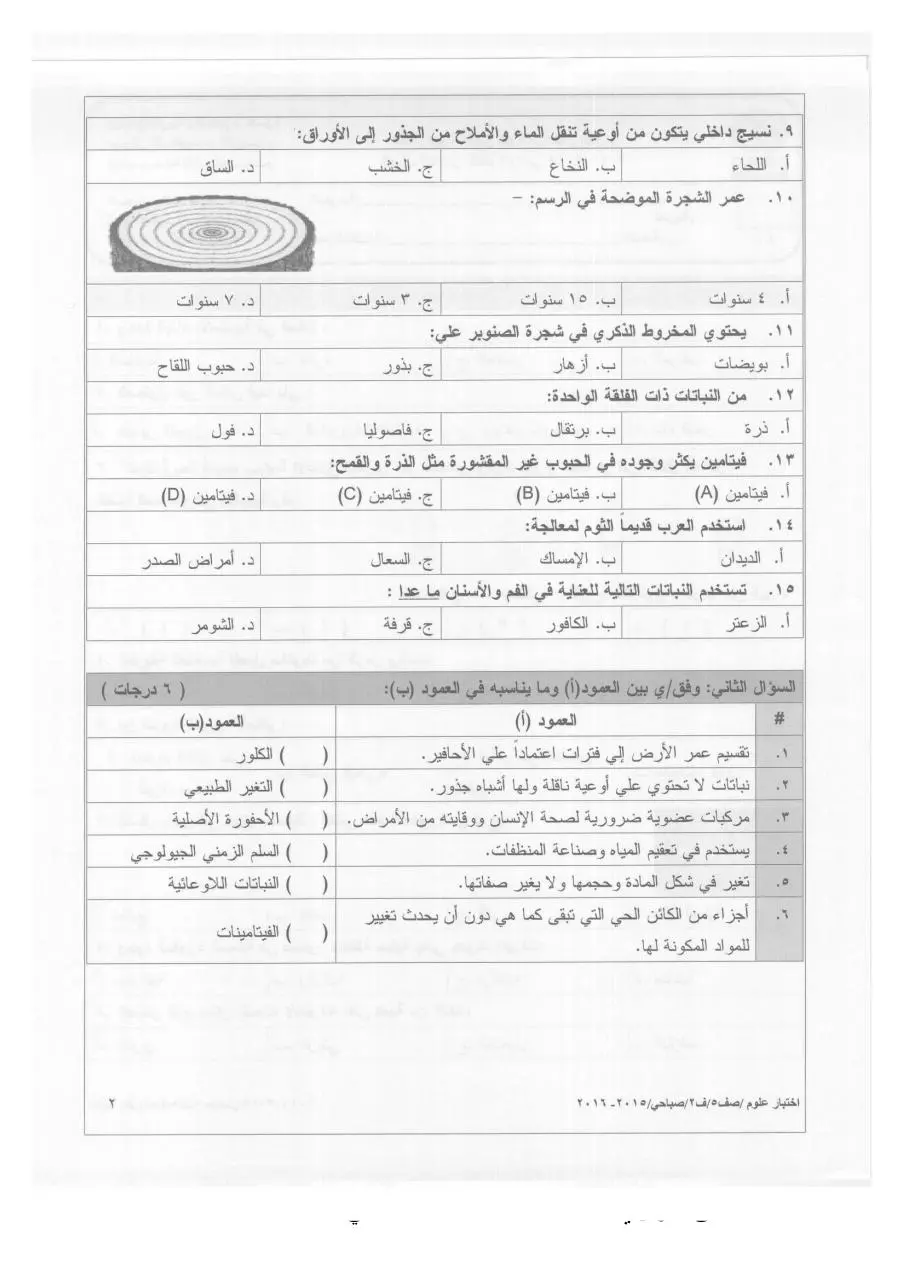 ٩. نسيج داخلي يتكون من أوعية تنقل الماء والأملاح من الجذور إلى الأوراق:
أ. اللحاء ب. النخاع ج. الخشب د. الساق
١٠. عمر الشجرة الموضحة في الرسم: –
أ. ٤ سنوات ب. ١٥ سنوات ج. ٣ سنوات د. ٧ سنوات
١١. يحتوي المخروط الذكري في شجرة الصنوبر علي:
أ. بويضات ب. أزهار ج. بذور د. حبوب اللقاح
١٢. من النباتات ذات الفلقة الواحدة:
أ. ذرة ب. برتقال ج. فاصوليا د. فول
١٣. فيتامين يكثر وجوده في الحبوب غير المقشورة مثل الذرة والقمح:
أ. فيتامين (A) ب. فيتامين (B) ج. فيتامين (C) د. فيتامين (D)
١٤. استخدم العرب قديماً الثوم لمعالجة:
أ. الديدان ب. الإمساك ج. السعال د. أمراض الصدر
١٥. تستخدم النباتات التالية للعناية في الفم والأسنان ما عدا :
أ. الزعتر ب. الكافور ج. قرفة د. الشومر
السؤال الثاني: وفق/ي بين العمود(أ) وما يناسبه في العمود (ب): ( ٦ درجات )
# العمود (أ) العمود(ب)
١. تقسيم عمر الأرض إلي فترات اعتماداً علي الأحافير. ( ) الكلور
٢. نباتات لا تحتوي علي أوعية ناقلة ولها أشباه جذور. ( ) التغير الطبيعي
٣. مركبات عضوية ضرورية لصحة الإنسان ووقايته من الأمراض. ( ) الأحفورة الأصلية
٤. يستخدم في تعقيم المياه وصناعة المنظفات. ( ) السلم الزمني الجيولوجي
٥. تغير في شكل المادة وحجمها ولا يغير صفاتها. ( ) النباتات اللاوعائية
٦. أجزاء من الكائن الحي التي تبقى كما هي دون أن يحدث تغيير
للمواد المكونة لها. ( ) الفيتامينات
اختبار علوم /صف٥/ف٢/صباحي/٢٠١٥- ٢٠١٦ ٢